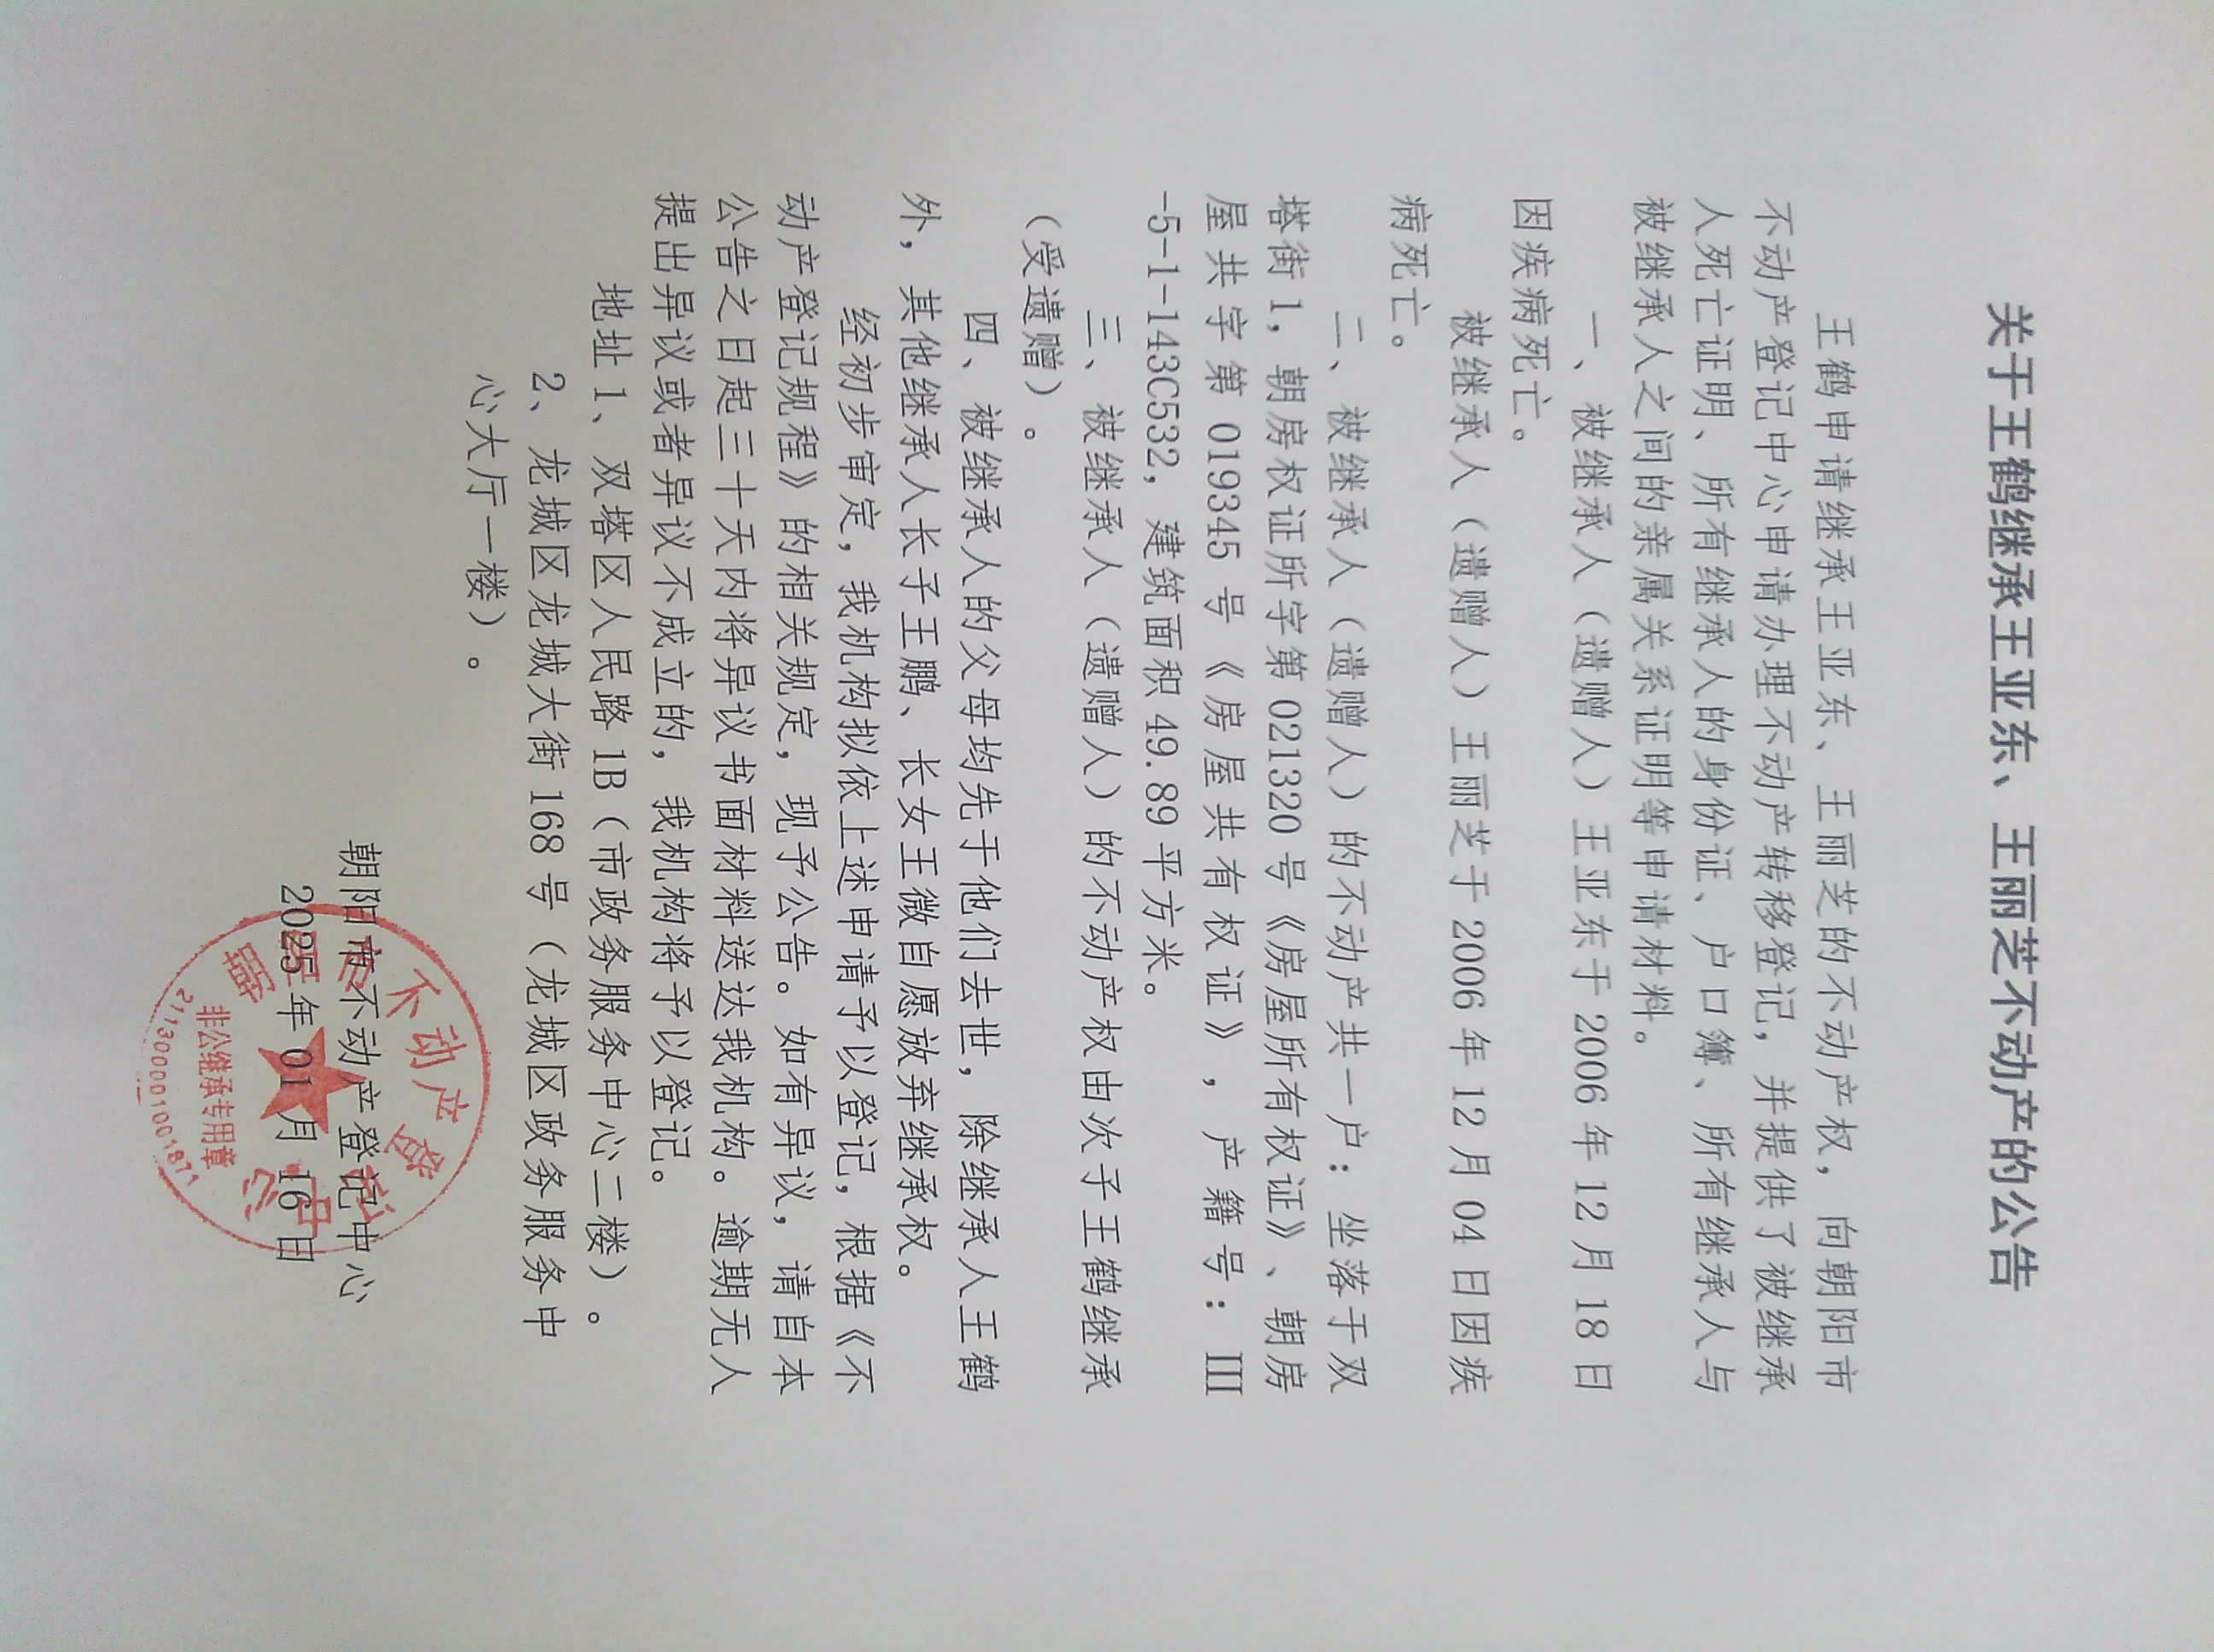 关于王鹤继承王亚东、王丽芝不动产的公告
王鹤申请继承王亚东、王丽芝的不动产权，向朝阳市
不动产登记中心申请办理不动产转移登记，并提供了被继承
人死亡证明、所有继承人的身份证、户口簿、所有继承人与
被继承人之间的亲属关系证明等申请材料。
一、被继承人（遗赠人）王亚东于 2006 年 12 月 18 日
因疾病死亡。
被继承人（遗赠人）王丽芝于 2006 年 12 月 04 日因疾
病死亡。
二、被继承人（遗赠人）的不动产共一户：坐落于双
塔街 1，朝房权证所字第 021320 号《房屋所有权证》、朝房
屋共字第 019345 号《房屋共有权证》，产籍号：III
-5-1-143C532，建筑面积 49.89 平方米。
三、被继承人（遗赠人）的不动产权由次子王鹤继承
（受遗赠）。
四、被继承人的父母均先于他们去世，除继承人王鹤
外，其他继承人长子王鹏、长女王微自愿放弃继承权。
经初步审定，我机构拟依上述申请予以登记，根据《不
动产登记规程》的相关规定，现予公告。如有异议，请自本
公告之日起三十天内将异议书面材料送达我机构。逾期无人
提出异议或者异议不成立的，我机构将予以登记。
地址 1、双塔区人民路 1B（市政务服务中心二楼）。
2、龙城区龙城大街 168 号（龙城区政务服务中
心大厅一楼）。
朝阳市不动产登记中心
2025 年 01 月 16 日
不动产登记中心
非公继承专用章